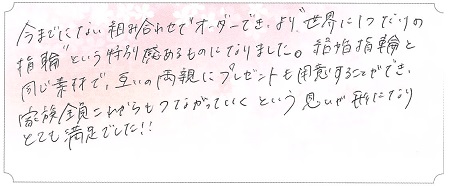 今までにない組み合わせでオーダーでき、より"世界に1つだけの
指輪"という特別感あるものになりました。結婚指輪と
同じ素材で、互いの両親にプレゼントも用意することができ、
家族全員これからもつながっていくという思いが形になり
とても満足でした!!